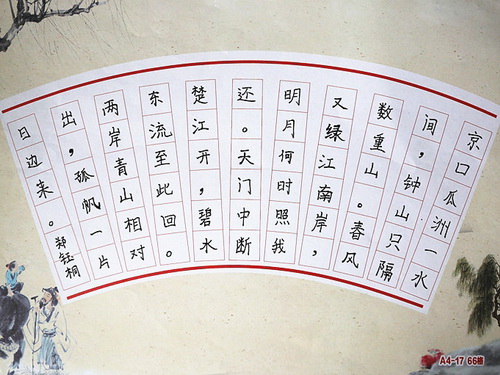 京口瓜洲一水
间，钟山只隔
数重山。春风
又绿江南岸，
明月何时照我
还。天门中断
楚江开，碧水
东流至此回。
两岸青山相对
出，孤帆一片
日边来。
郑钰桐
A4-17 66格